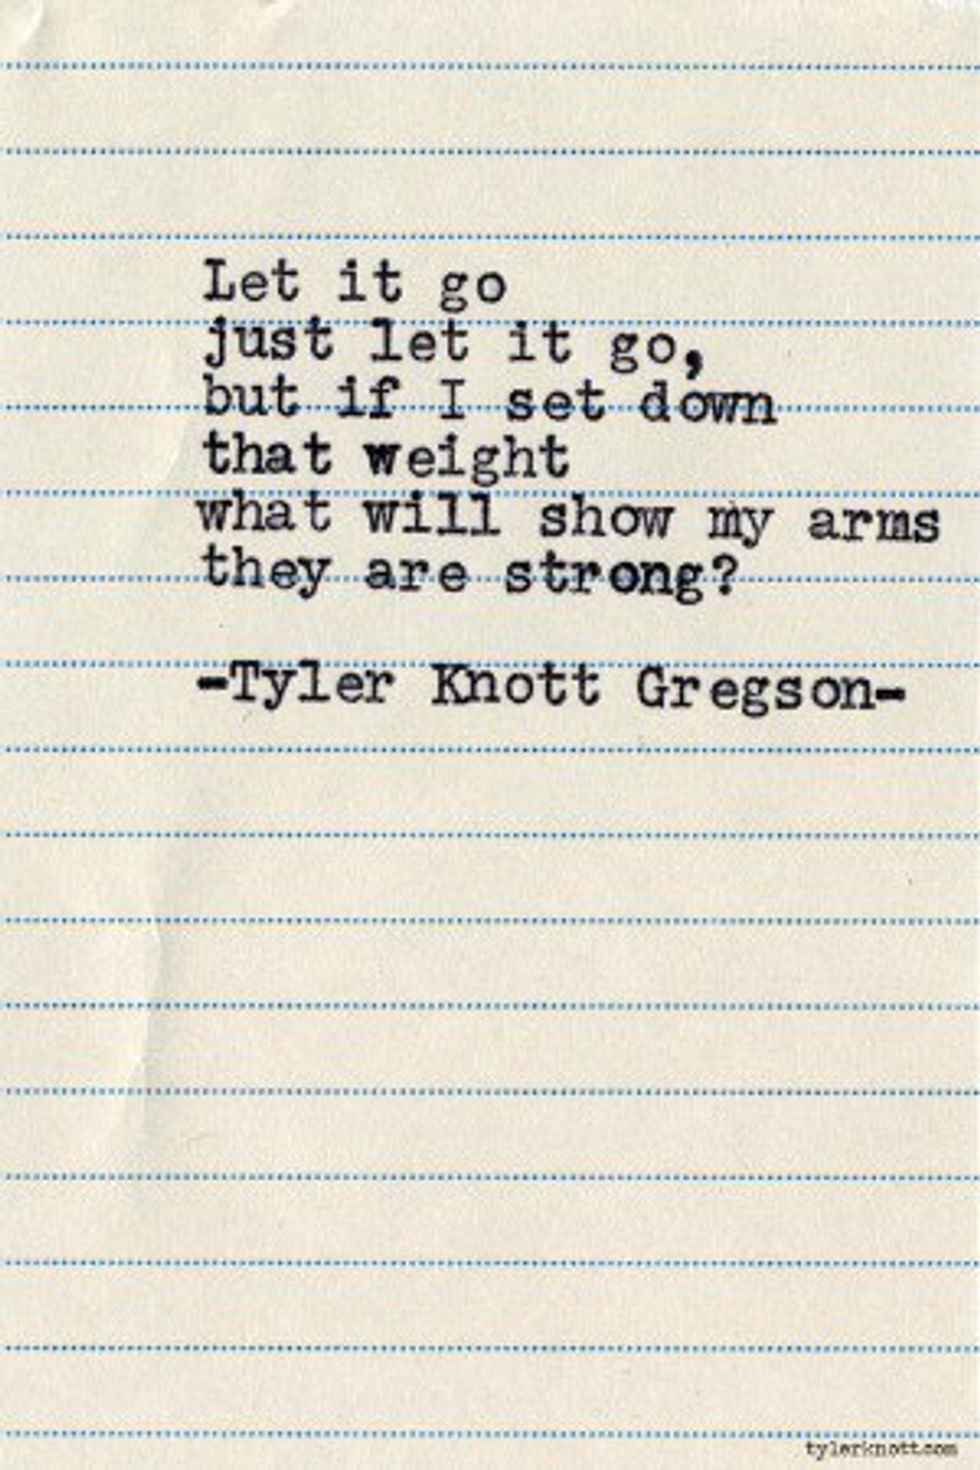 Let it go
just let it go,
but if I set down
that weight
what will show my arms
they are strong?
-Tyler Knott Gregson-
tylerknott.com